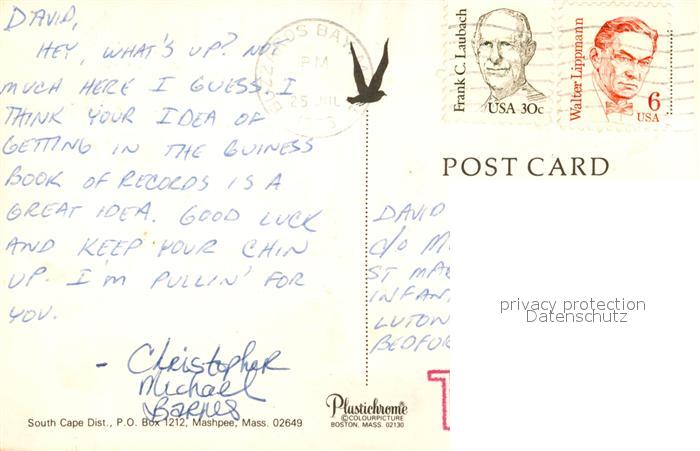 DAVID,
HEY, WHAT'S UP? NOT
MUCH HERE I GUESS. I
THINK YOUR IDEA OF
GETTING IN THE GUINESS
BOOK OF RECORDS IS A
GREAT IDEA. GOOD LUCK
AND KEEP YOUR CHIN
UP. I'M PULLIN' FOR
YOU.
- Christopher
Michael
Barnes
South Cape Dist., P.O. Box 1212, Mashpee, Mass. 02649
Plastichrome®
©COLOURPICTURE
BOSTON, MASS. 02130
BUZZARDS BAY
PM
25 JUL
Frank C. Laubach
USA 30c
Walter Lippmann
6
USA
POST CARD
DAVID
c/o M
ST MA
INFAN
LUTON
BEDFOR
privacy protection
Datenschutz